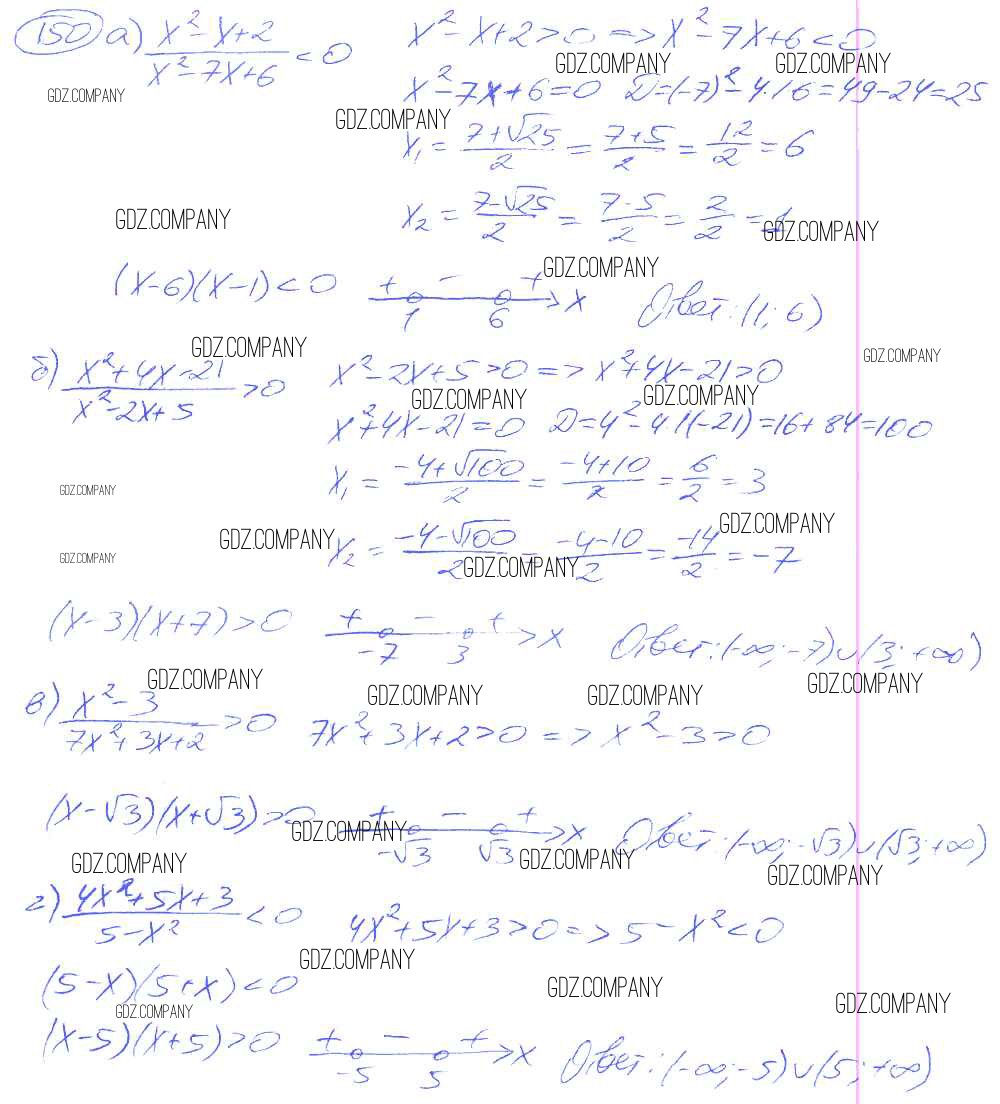 150 а) (x²-x+2)/(x²-7x+6) < 0   x²-x+2>0 => x²-7x+6<0
GDZ.COMPANY GDZ.COMPANY GDZ.COMPANY
x²-7x+6=0 D=(-7)²-4·1·6=49-24=25
GDZ.COMPANY
x₁ = (7+√25)/2 = (7+5)/2 = 12/2 = 6
GDZ.COMPANY
x₂ = (7-√25)/2 = (7-5)/2 = 2/2 = 1
GDZ.COMPANY
GDZ.COMPANY
(x-6)(x-1)<0 + - + 1 6 x Ответ: (1; 6)
GDZ.COMPANY GDZ.COMPANY
б) (x²+4x-21)/(x²-2x+5) > 0   x²-2x+5>0 => x²+4x-21>0
GDZ.COMPANY GDZ.COMPANY
x²+4x-21=0 D=4²-4·1(-21)=16+84=100
x₁ = (-4+√100)/2 = (-4+10)/2 = 6/2 = 3
GDZ.COMPANY
GDZ.COMPANY GDZ.COMPANY
x₂ = (-4-√100)/2 = (-4-10)/2 = -14/2 = -7
GDZ.COMPANY GDZ.COMPANY
(x-3)(x+7)>0 + - + -7 3 x Ответ: (-∞; -7)∪(3; +∞)
GDZ.COMPANY GDZ.COMPANY GDZ.COMPANY GDZ.COMPANY
в) (x²-3)/(7x²+3x+2) > 0   7x²+3x+2>0 => x²-3>0
(x-√3)(x+√3)>0 + - + -√3 √3 x Ответ: (-∞; -√3)∪(√3; +∞)
GDZ.COMPANY
GDZ.COMPANY GDZ.COMPANY GDZ.COMPANY
г) (4x²+5x+3)/(5-x²) < 0   4x²+5x+3>0 => 5-x²<0
GDZ.COMPANY
(5-x)(5+x)<0
GDZ.COMPANY GDZ.COMPANY
GDZ.COMPANY
(x-5)(x+5)>0 + - + -5 5 x Ответ: (-∞; -5)∪(5; +∞)